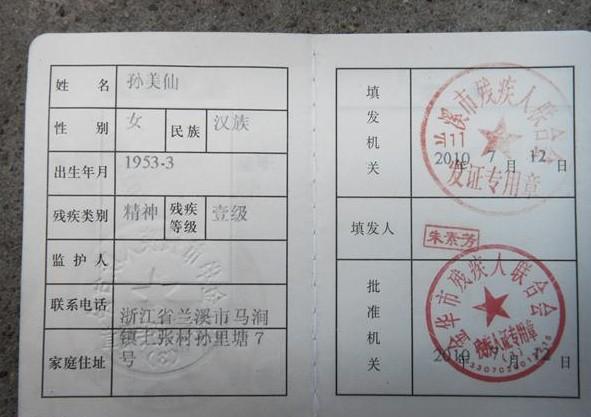 姓 名 孙美仙
性 别 女 民族 汉族
出生年月 1953-3
残疾类别 精神 残疾等级 壹级
监护人
联系电话
家庭住址 浙江省兰溪市马涧
镇上张村孙里塘7
号
填发机关
兰溪市残疾人联合会
2010年7月12日
发证专用章
填发人
朱素芳
批准机关
金华市残疾人联合会
残疾人证专用章
2010年7月12日